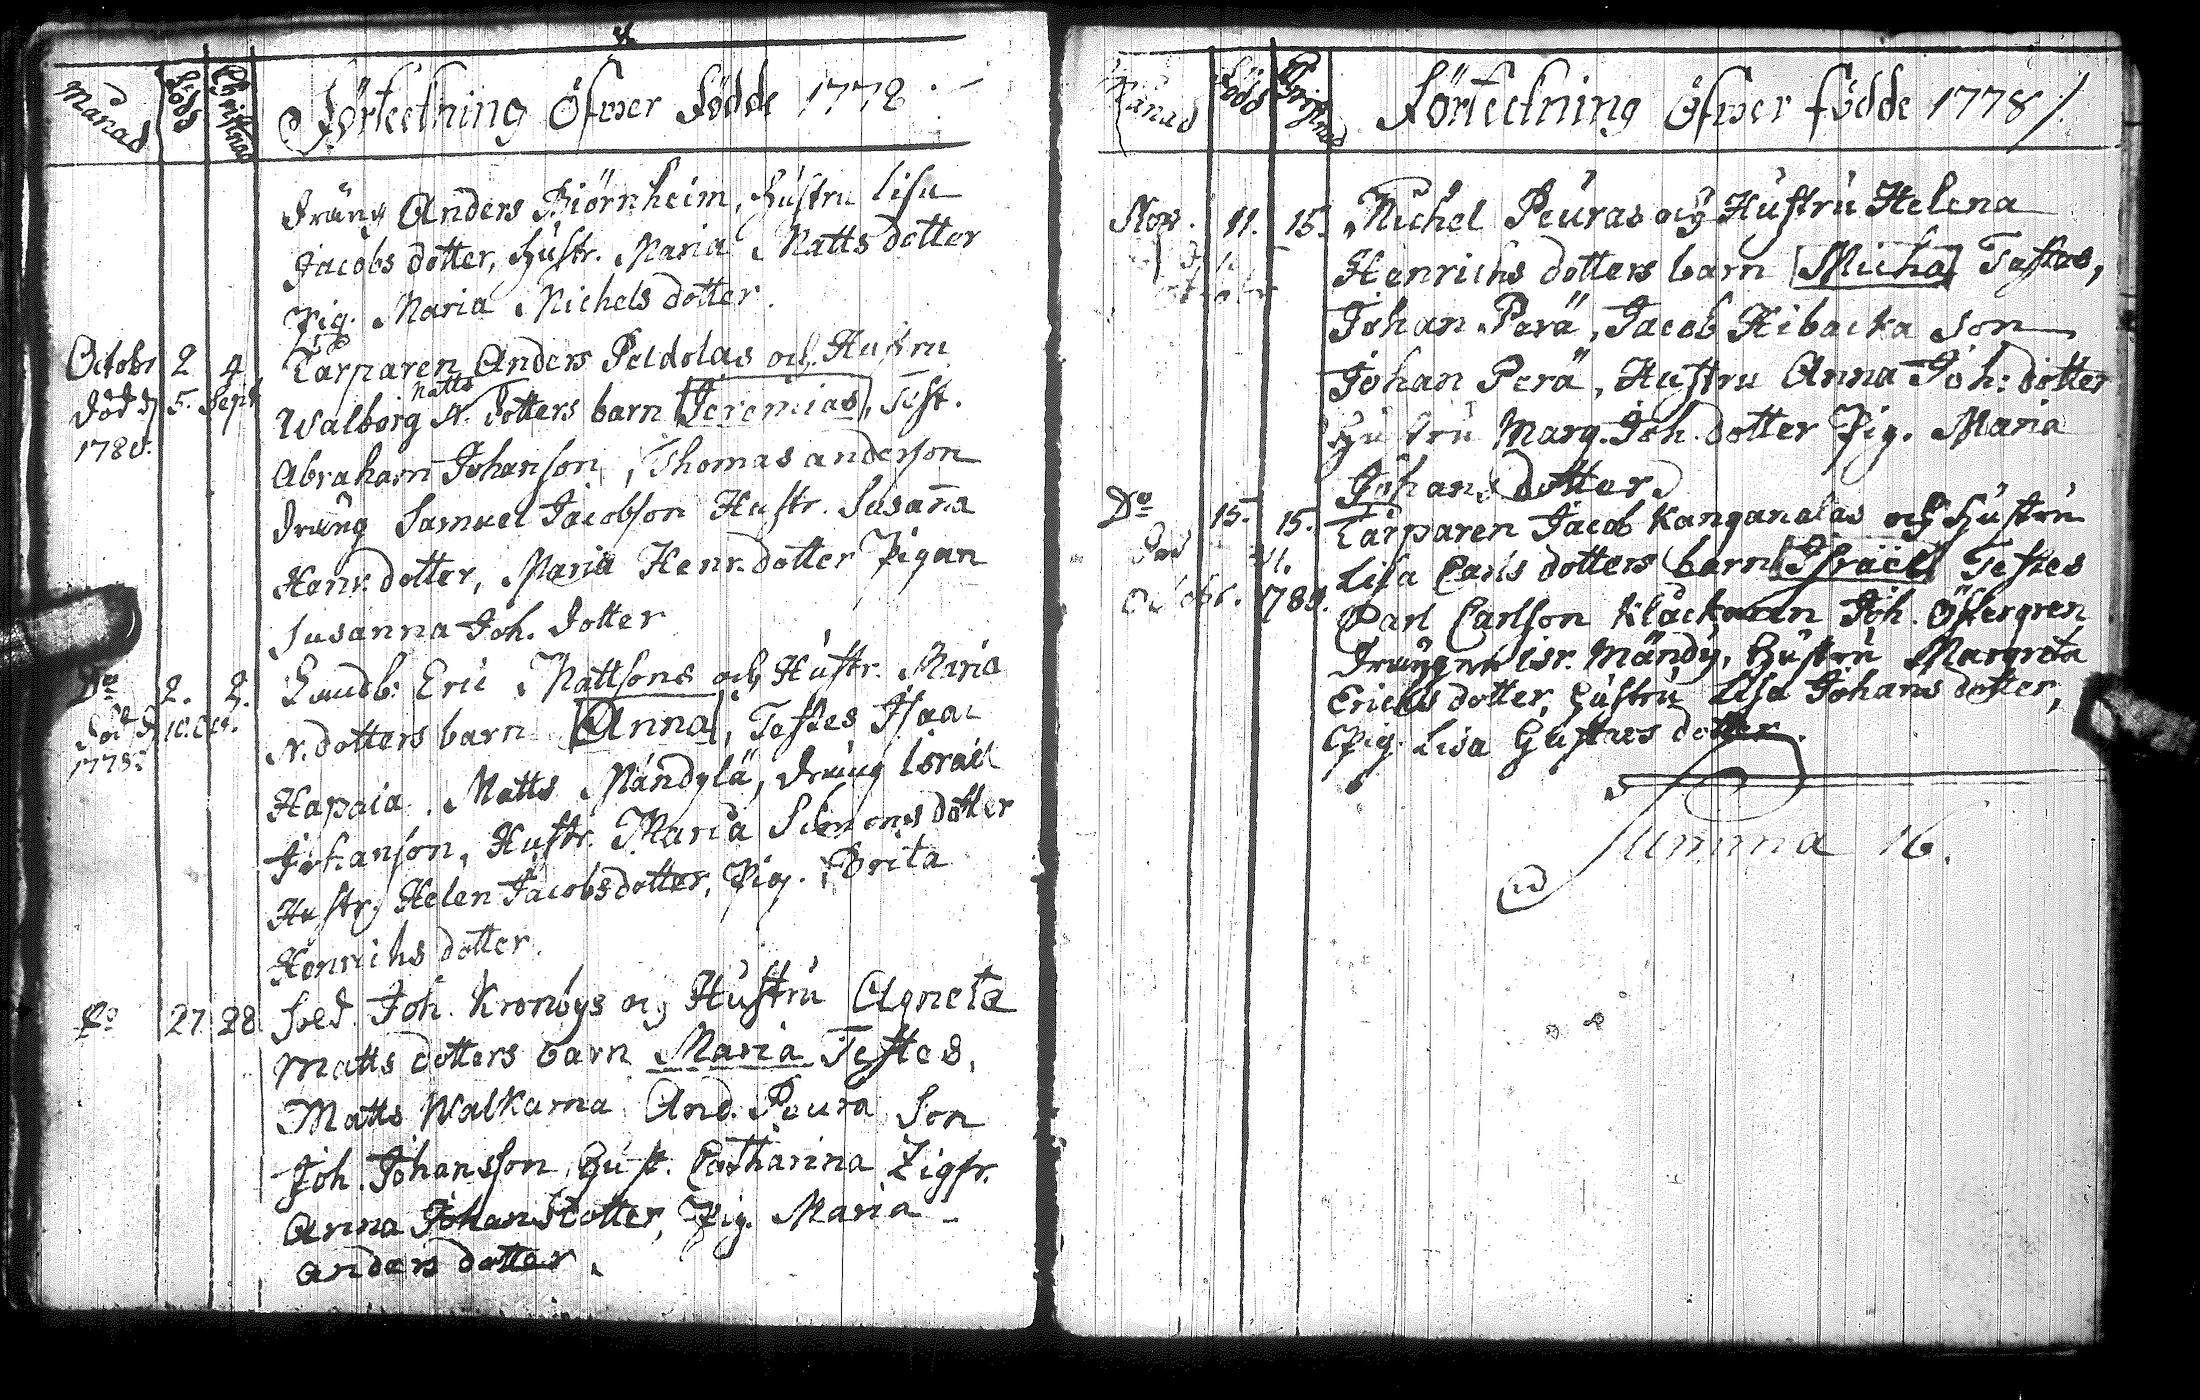 Månad Född Christnad Förtectning öfwer Födde 1778.
Dräng Anders Biörnheim, Hustru Lisa
Jacobs dotter, Hustr. Maria Matts dotter
Pig. Maria Michels dotter.
Octobr 2 4 Tarparen Anders Peldolas och Hustru
Död d 5. Sept Walborg N. Matts dotters barn Jeremias, Test.
1780. Abraham Johanson, Thomas anderson
Dräng Samuel Jacobson Hustr. Susanna
Henr. dotter, Maria Henr. dotter Pigan
Susanna Joh. dotter
Do 2. 2. Landb: Eric Mattsons och Hustr. Maria
Död d 10. Oct. N. dotters barn Anna, Testes Isaac
1778. Hapaia. Matts Mändylä, dräng Israel
Johanson, Hustr. Maria Simons dotter
Hustr. Helen Jacobs dotter, Pig. Brita
Henrichs dotter.
Do 27 28 Sold. Joh. Kronbys och Hustru Agneta
Matts dotters barn Maria Testes,
Matts Walkama And. Peura Son
Joh. Johansson, Hust. Catharina Zigfr.
Anna Johans dotter, Pig. Maria
Anders dotter.
Månad Född Christnad Förtectning öfwer födde 1778
Nov. 11. 15. Michel Peuras och Hustru Helena
Henrichs dotters barn Micha Testes,
Johan Perä, Jacob Hibacka son
Johan Perä, Hustru Anna Joh: dotter
Hustru Marg. Joh. dotter Pig. Maria
Johans dotter
Do 15. 15. Tarparen Jacob Kanganalas och Hustru
Död 21. Lisa Carls dotters barn Israel Testes
Octobr. 1780. Carl Carlson Klåckaren Joh. Östergren
Drängen isr. Mändy, Hustru Margreta
Ericks dotter, Hustru Lisa Johans dotter,
Pig. Lisa Gustavs dotter.
Summa 16.